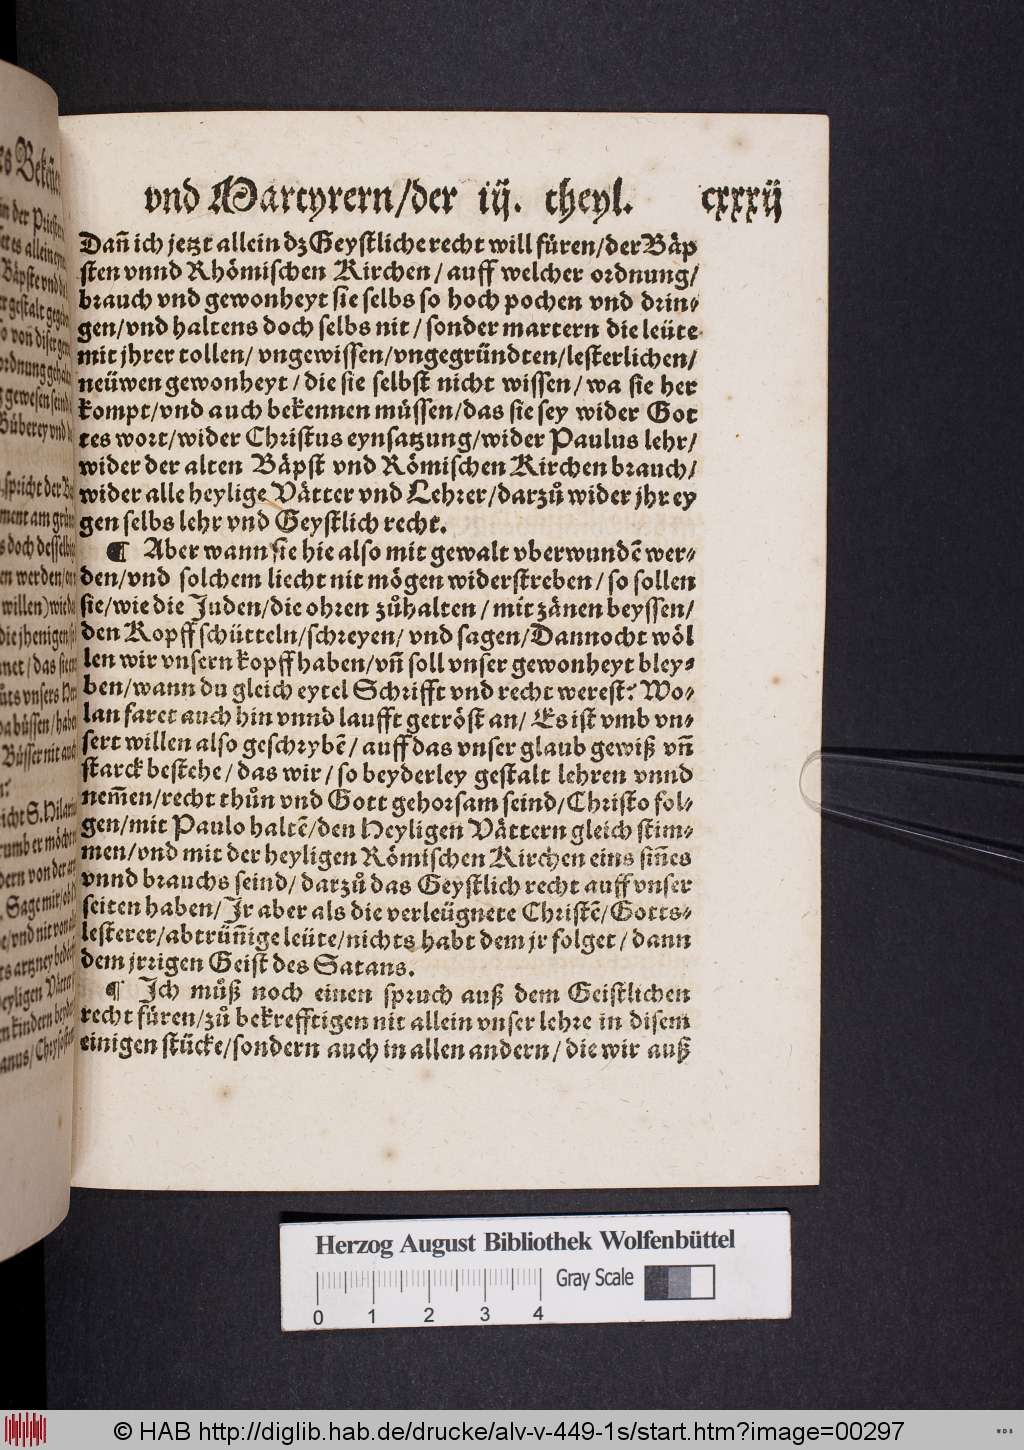 vnd Martyrern/der iij. theyl. cxxxij
Dañ ich jetzt allein dz Geystliche recht will füren/der Bäp
sten vnnd Rhömischen Kirchen/ auff welcher ordnung/
brauch vnd gewonheyt sie selbs so hoch pochen vnd drin-
gen/vnd haltens doch selbs nit/ sonder martern die leüte
mit jhrer tollen/ vngewissen/vngegründten/lesterlichen/
neüwen gewonheyt/ die sie selbst nicht wissen/ wa sie her
kompt/vnd auch bekennen müssen/das sie sey wider Got
tes wort/wider Christus eynsatzung/wider Paulus lehr/
wider der alten Bäpst vnd Römischen Kirchen brauch/
wider alle heylige Vätter vnd Lehrer/darzů wider jhr ey
gen selbs lehr vnd Geystlich recht.
¶ Aber wann sie hie also mit gewalt vberwundẽ wer-
den/vnd solchem liecht nit mögen widerstreben/ so sollen
sie/wie die Juden/die ohren zůhalten/ mit zänen beyssen/
den Kopff schütteln/schreyen/ vnd sagen/Dannocht wöl
len wir vnsern kopff haben/vñ soll vnser gewonheyt bley-
ben/wann du gleich eytel Schrifft vnd recht werest? Wo-
lan faret auch hin vnnd laufft getröst an/ Es ist vmb vn-
sert willen also geschrybẽ/ auff das vnser glaub gewiß vñ
starck bestehe/ das wir/ so beyderley gestalt lehren vnnd
nem̃en/recht thůn vnd Gott gehorsam seind/Christo fol-
gen/mit Paulo haltẽ/den Heyligen Vättern gleich stim-
men/vnd mit der heyligen Römischen Kirchen eins siñes
vnnd brauchs seind/ darzů das Geystlich recht auff vnser
seiten haben/ Jr aber als die verleügnete Christẽ/Gotts-
lesterer/abtrüñige leüte/nichts habt dem jr folget/ dann
dem jrrigen Geist des Satans.
¶ Ich můß noch einen spruch auß dem Geistlichen
recht füren/zů bekrefftigen nit allein vnser lehre in disem
einigen stücke/sondern auch in allen andern/ die wir auß
Herzog August Bibliothek Wolfenbüttel
Gray Scale
0 1 2 3 4
© HAB http://diglib.hab.de/drucke/alv-v-449-1s/start.htm?image=00297